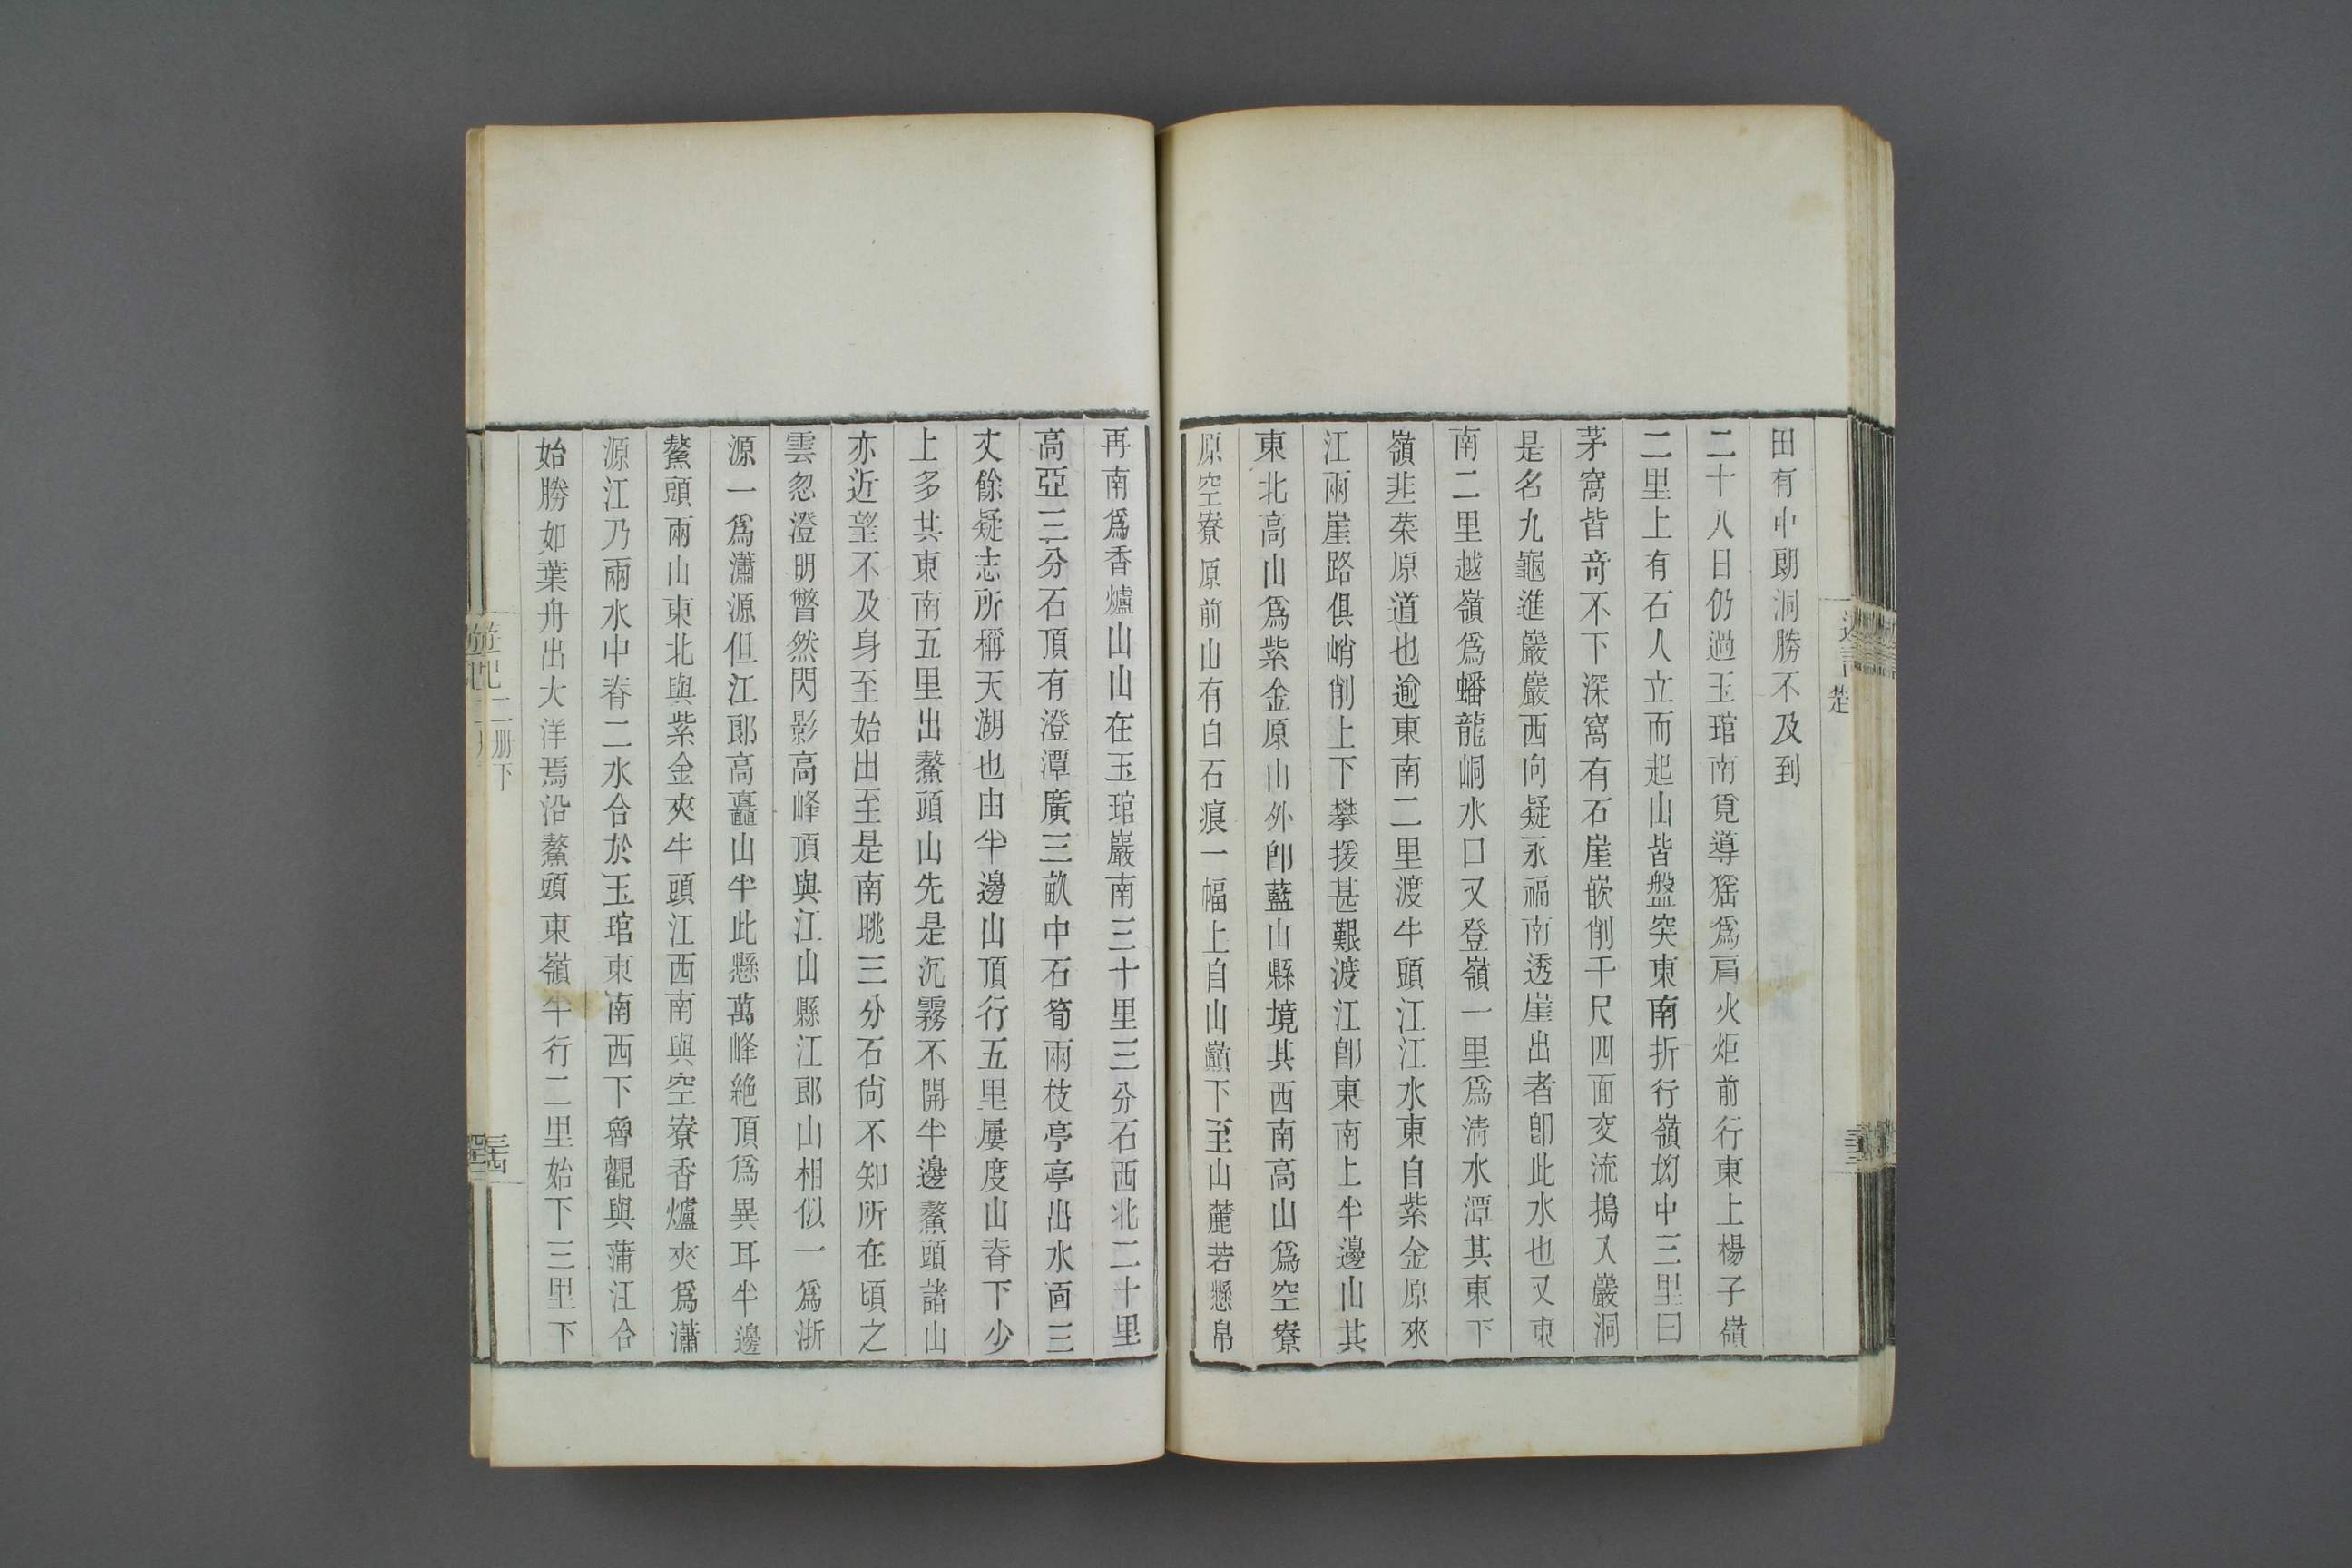 遊記
楚
三三
田有中朗洞勝不及到
二十八日仍過玉琯南覓導猺爲肩火炬前行東上楊子嶺
二里上有石人立而起山皆盤突東南折行嶺㘭中三里曰
茅窩皆奇不下深窩有石崖嵌削千尺四面交流搗入巖洞
是名九龜進巖巖西向疑永福南透崖出者卽此水也又東
南二里越嶺爲蟠龍峒水口又登嶺一里爲淸水潭其東下
嶺韭菜原道也逾東南二里渡牛頭江江水東自紫金原來
江兩崖路俱峭削上下攀援甚艱渡江卽東南上半邊山其
東北高山爲紫金原山外卽藍山縣境其西南高山爲空寮
原空寮原前山有白石痕一幅上自山巓下至山麓若懸帛
再南爲香爐山山在玉琯巖南三十里三分石西北二十里
高亞三分石頂有澄潭廣三畝中石筍兩枝亭亭出水面三
丈餘疑志所稱天湖也由半邊山頂行五里屢度山脊下少
上多其東南五里出鰲頭山先是沉霧不開半邊鰲頭諸山
亦近望不及身至始出至是南眺三分石尙不知所在頃之
雲忽澄明瞥然閃影高峰頂與江山縣江郎山相似一爲浙
源一爲瀟源但江郎高矗山半此懸萬峰絶頂爲異耳半邊
鰲頭兩山東北與紫金夾牛頭江西南與空寮香爐夾爲瀟
源江乃兩水中脊二水合於玉琯東南西下魯觀與蒲江合
始勝如葉舟出大洋焉沿鰲頭東嶺半行二里始下三里下
遊記二册下
三四